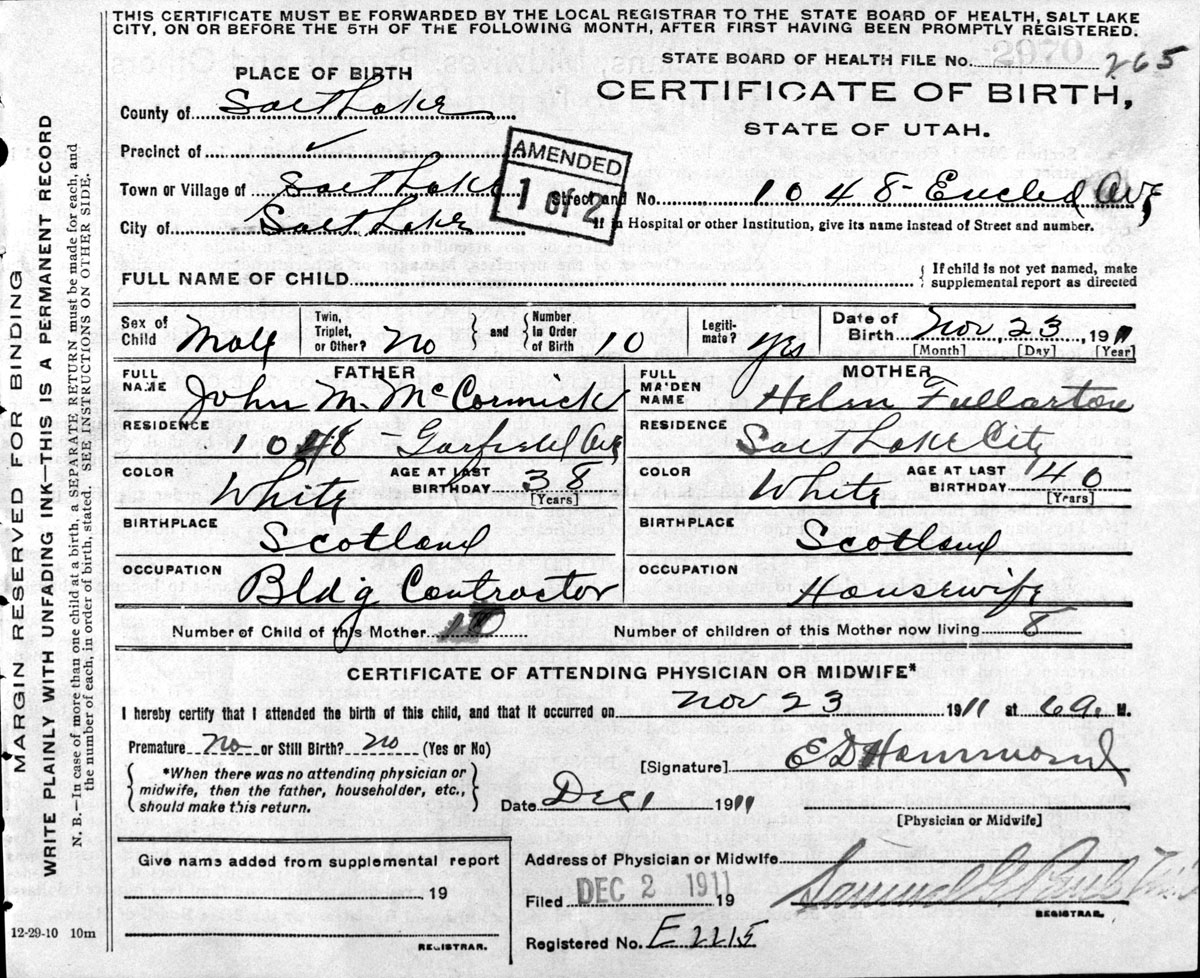 THIS CERTIFICATE MUST BE FORWARDED BY THE LOCAL REGISTRAR TO THE STATE BOARD OF HEALTH, SALT LAKE
CITY, ON OR BEFORE THE 5TH OF THE FOLLOWING MONTH, AFTER FIRST HAVING BEEN PROMPTLY REGISTERED.
STATE BOARD OF HEALTH FILE No. 265
PLACE OF BIRTH
CERTIFICATE OF BIRTH,
STATE OF UTAH.
County of Salt Lake
Precinct of ✓
AMENDED
1 OF 2
Town or Village of Salt Lake Street and No. 1048 - Euclid Ave
City of Salt Lake If in Hospital or other Institution, give its name instead of Street and number.
FULL NAME OF CHILD
If child is not yet named, make
supplemental report as directed
Sex of Child Male
Twin, Triplet, or Other? No
and
Number in Order of Birth 10
Legiti-mate? yes
Date of Birth Nov 23, 1911
[Month] [Day] [Year]
FATHER
FULL NAME John M. McCormick
RESIDENCE 1048 Garfield Ave
COLOR White AGE AT LAST BIRTHDAY 38
[Years]
BIRTHPLACE Scotland
OCCUPATION Bldg Contractor
MOTHER
FULL MAIDEN NAME Helen Fullarton
RESIDENCE Salt Lake City
COLOR White AGE AT LAST BIRTHDAY 40
[Years]
BIRTHPLACE Scotland
OCCUPATION Housewife
Number of Child of this Mother 10 Number of children of this Mother now living 8
CERTIFICATE OF ATTENDING PHYSICIAN OR MIDWIFE*
I hereby certify that I attended the birth of this child, and that it occurred on Nov 23 1911 at 6 a. M.
Premature no or Still Birth? no (Yes or No)
*When there was no attending physician or
midwife, then the father, householder, etc.,
should make this return.
[Signature] E D Hammond
Date Dec 1 1911
[Physician or Midwife]
Give name added from supplemental report
19
REGISTRAR.
Address of Physician or Midwife
Filed DEC 2 1911 19
Samuel G. Paul
REGISTRAR.
Registered No. E2215
12-29-10 10m
MARGIN RESERVED FOR BINDING
WRITE PLAINLY WITH UNFADING INK—THIS IS A PERMANENT RECORD
N. B.—In case of more than one child at a birth, a SEPARATE RETURN must be made for each, and
the number of each, in order of birth, stated. SEE INSTRUCTIONS ON OTHER SIDE.